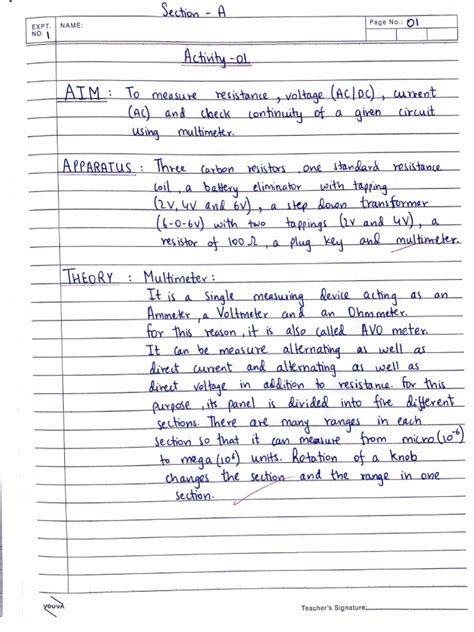 Section - A
EXPT. NO. 1
NAME:
Page No.: 01
Activity-01
AIM : To measure resistance, voltage (AC/DC), current
(AC) and check continuity of a given circuit
using multimeter.
APPARATUS : Three carbon resistors, one standard resistance
coil, a battery eliminator with tapping
(2V, 4V and 6V), a step down transformer
(6-0-6V) with two tappings (2V and 4V), a
resistor of 100 Ω, a plug key and multimeter.
THEORY : Multimeter:
It is a single measuring device acting as an
Ammeter, a Voltmeter and an Ohmmeter.
for this reason, it is also called AVO meter.
It can be measure alternating as well as
direct current and alternating as well as
direct voltage in addition to resistance. for this
purpose, its panel is divided into five different
sections. There are many ranges in each
section so that it can measure from micro (10⁻⁶)
to mega (10⁶) units. Rotation of a knob
changes the section and the range in one
section.
YOUVA
Teacher's Signature: